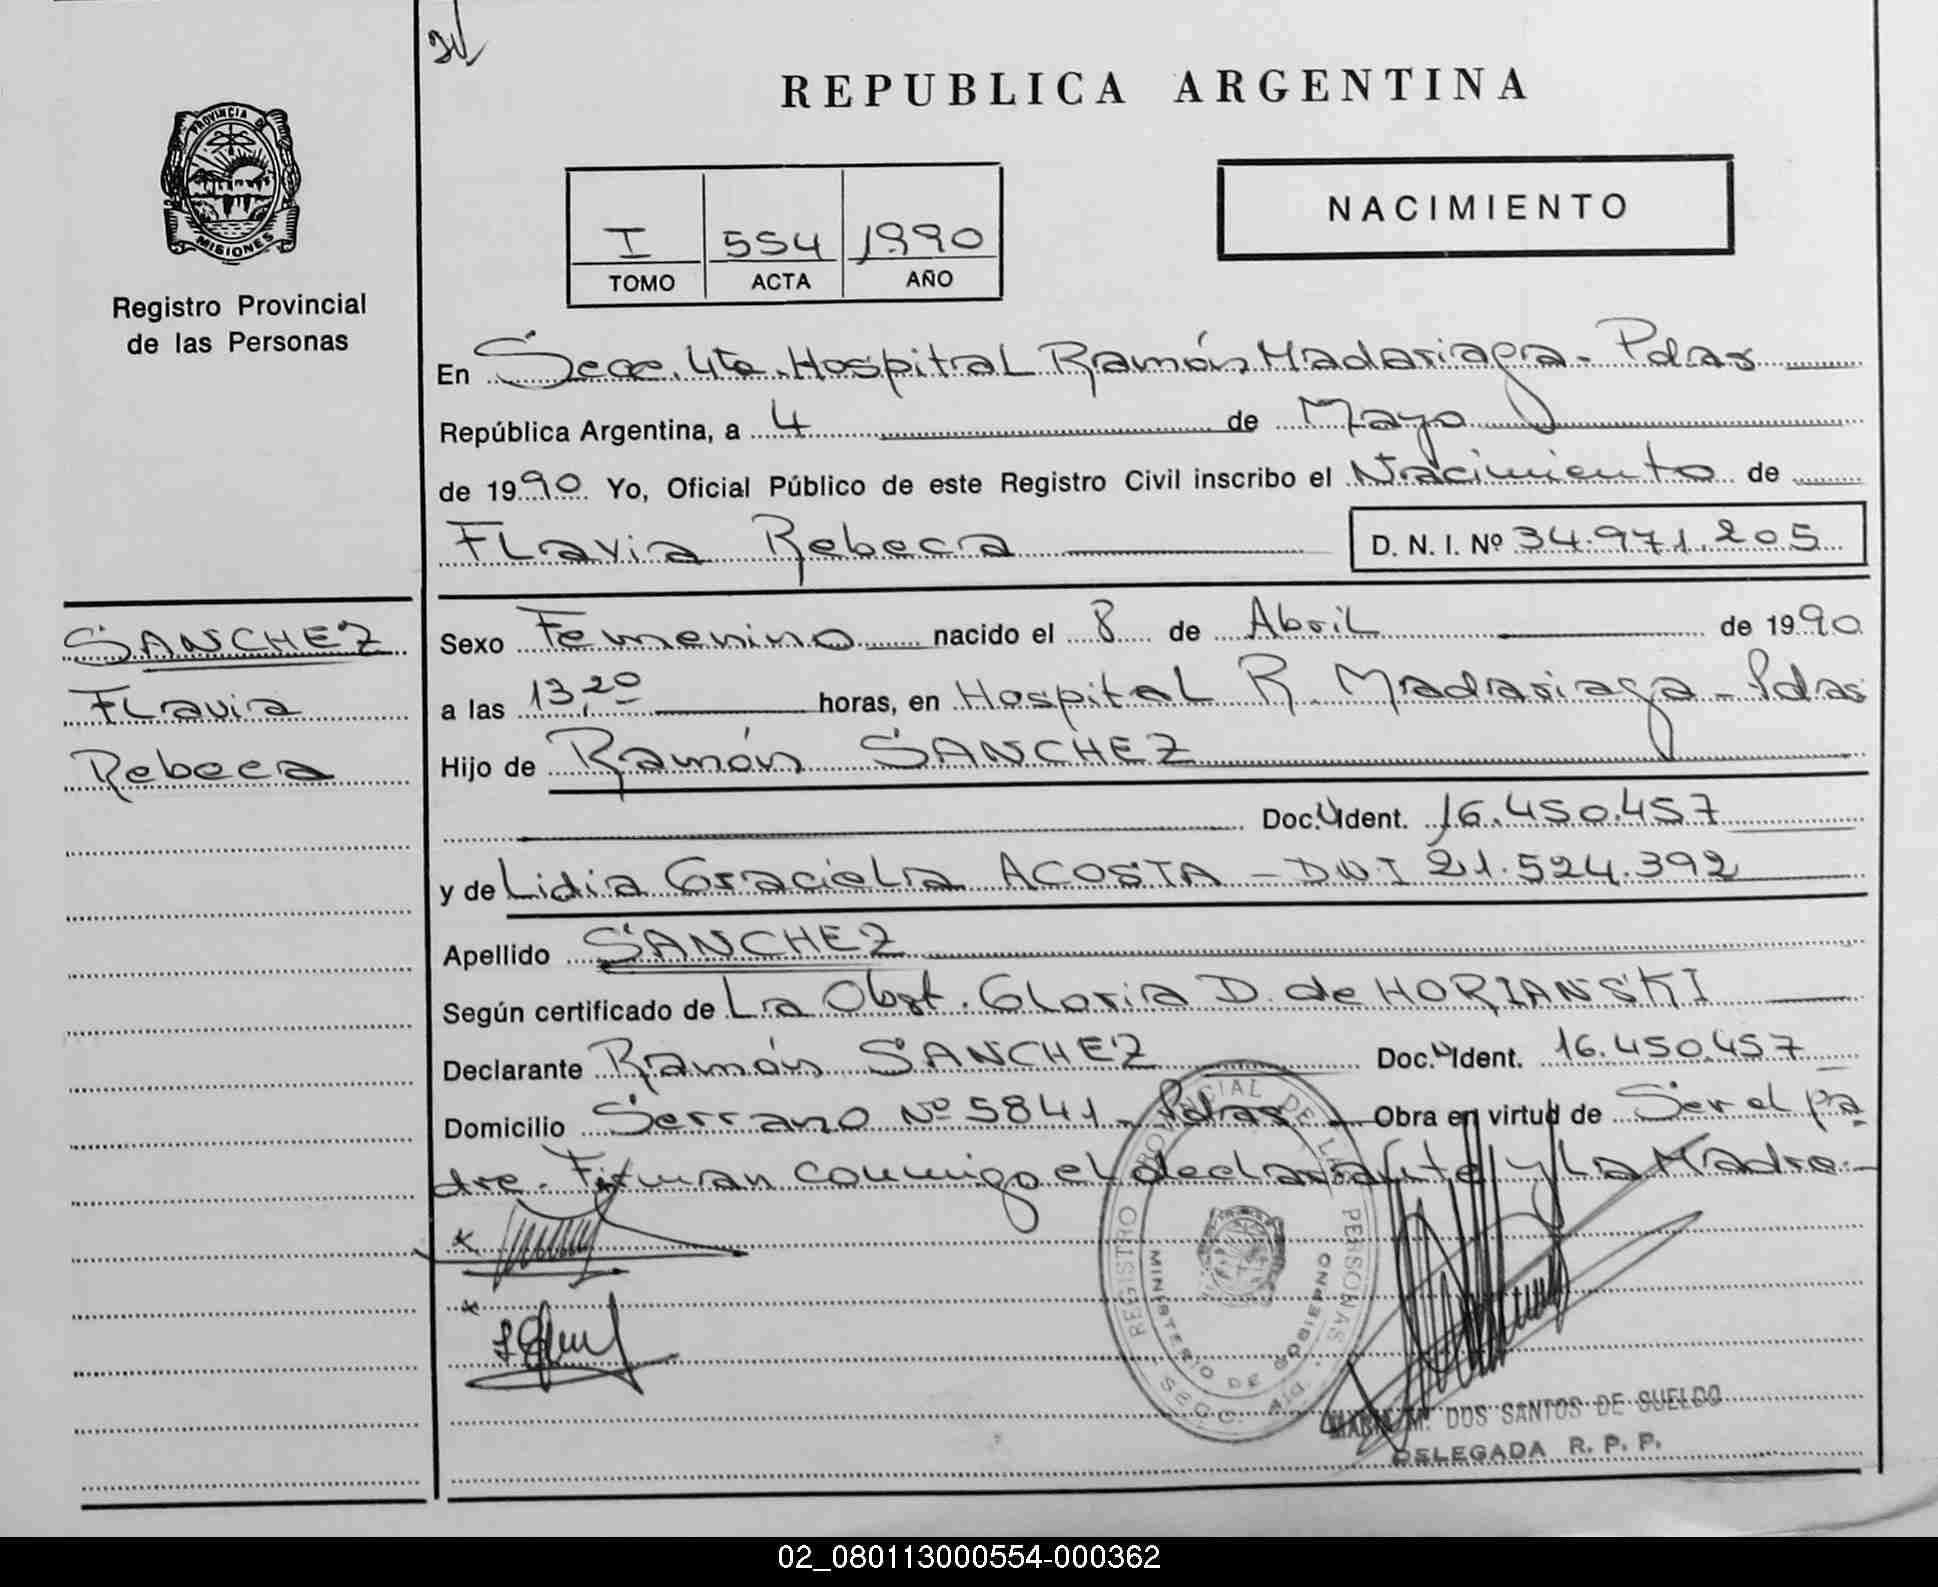 REPUBLICA ARGENTINA
PROVINCIA DE
MISIONES
Registro Provincial
de las Personas
NACIMIENTO
I 554 1990
TOMO ACTA AÑO
En Secc. 4ta. Hospital Ramón Madariaga - Pdas
República Argentina, a 4 de Mayo
de 1990. Yo, Oficial Público de este Registro Civil inscribo el Nacimiento de
Flavia Rebeca D. N. I. Nº 34.971.205
SANCHEZ
Flavia
Rebeca
Sexo Femenino nacido el 8 de Abril de 1990
a las 13,20 horas, en Hospital R. Madariaga - Pdas
Hijo de Ramón SANCHEZ
Doc. Ident. 16.450.457
y de Lidia Graciela ACOSTA - DNI 21.524.392
Apellido SANCHEZ
Según certificado de La Obst. Gloria D. de HORIANSKI
Declarante Ramón SANCHEZ Doc. Ident. 16.450.457
Domicilio Serrano Nº 5841 - Pdas Obra en virtud de Ser el pa
dre. Firman conmigo el declarante y La Madre.-
REGISTRO PROVINCIAL DE LAS PERSONAS
MINISTERIO DE GOBIERNO
MARIA M. DOS SANTOS DE SUELDO
DELEGADA R. P. P.
02_080113000554-000362